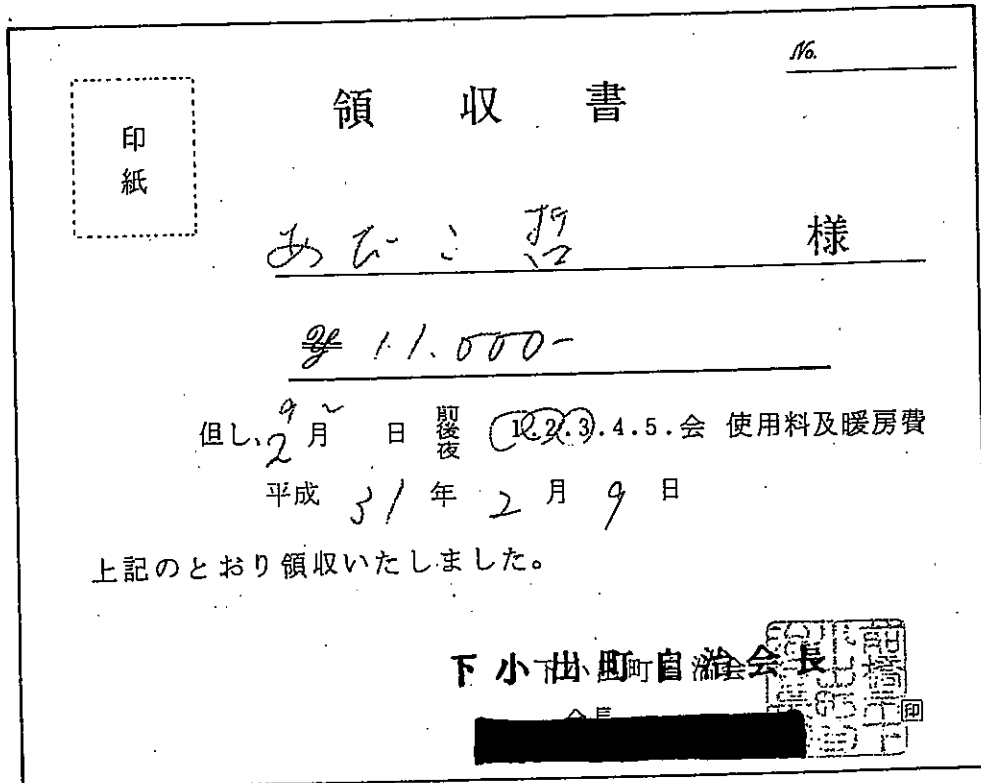 No.
印紙
領収書
あびこ哲 様
¥ 11.000-
但し、9〜2月 日 前後夜 1.2.3.4.5.会 使用料及暖房費
平成 31年 2月 9日
上記のとおり領収いたしました。
下小出町自治会長
下小出町自治会
会長
印